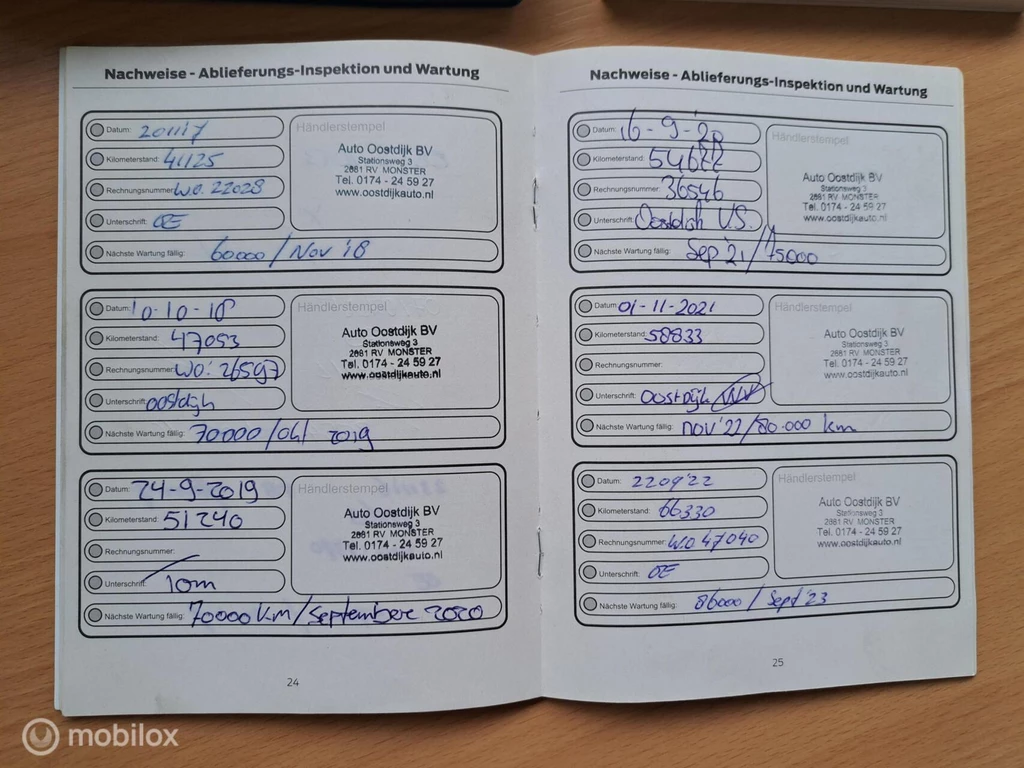 Nachweise - Ablieferungs-Inspektion und Wartung
Datum: 201117
Kilometerstand: 41125
Rechnungsnummer: W.O. 22028
Unterschrift: OE
Nächste Wartung fällig: 60000 / Nov '18
Händlerstempel
Auto Oostdijk BV
Stationsweg 3
2681 RV MONSTER
Tel. 0174 - 24 59 27
www.oostdijkauto.nl
Datum: 10-10-18
Kilometerstand: 47093
Rechnungsnummer: WO: 26597
Unterschrift: oostdijk
Nächste Wartung fällig: 70000 / okt 2019
Händlerstempel
Auto Oostdijk BV
Stationsweg 3
2681 RV MONSTER
Tel. 0174 - 24 59 27
www.oostdijkauto.nl
Datum: 24-9-2019
Kilometerstand: 51240
Rechnungsnummer:
Unterschrift: Tom
Nächste Wartung fällig: 70000 km/septembere 2020
Händlerstempel
Auto Oostdijk BV
Stationsweg 3
2681 RV MONSTER
Tel. 0174 - 24 59 27
www.oostdijkauto.nl
24
Nachweise - Ablieferungs-Inspektion und Wartung
Datum: 16-9-'20
Kilometerstand: 54622
Rechnungsnummer: 36546
Unterschrift: Oostdijk V.S.
Nächste Wartung fällig: Sep '21 / 75000
Händlerstempel
Auto Oostdijk BV
Stationsweg 3
2681 RV MONSTER
Tel. 0174 - 24 59 27
www.oostdijkauto.nl
Datum: 01-11-2021
Kilometerstand: 58833
Rechnungsnummer:
Unterschrift: Oostdijk
Nächste Wartung fällig: nov '22 / 80.000 km
Händlerstempel
Auto Oostdijk BV
Stationsweg 3
2681 RV MONSTER
Tel. 0174 - 24 59 27
www.oostdijkauto.nl
Datum: 2209'22
Kilometerstand: 66330
Rechnungsnummer: W.O 47040
Unterschrift: OE
Nächste Wartung fällig: 86000 / Sept '23
Händlerstempel
Auto Oostdijk BV
Stationsweg 3
2681 RV MONSTER
Tel. 0174 - 24 59 27
www.oostdijkauto.nl
25
mobilox